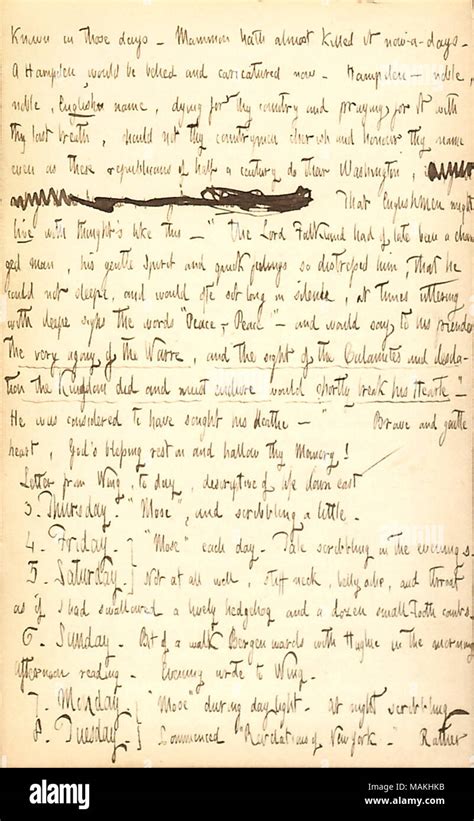 Known in those days — Mammon hath almost killed it now-a-days.
A Hampden would be belied and caricatured now. Hampden — noble
noble, English name, dying for thy country and praying for it with
thy last breath, should not thy countrymen cherish and honour thy name
even as these republicans of half a century do their Washington,
That Englishmen might
live with thoughts like this — "The Lord Falkland had of late been a chan
ged man, his gentle spirit and so distressed him, that he
could not sleepe, and would ofte set long in silence, at times uttering
with deepe sighs the words "Peace, Peace" — and would say to his friends
the very agony of the Warre, and the sight of the Calamities and desola
tion the Kingdom did and must endure would shortly break his Hearte "—
He was considered to have sought his deathe — " Brave and gentle
heart, God's blessing rest on and hallow thy Memory!
Letter from Wing, to day, descriptive of life down east
3. Thursday. "Mose", and scribbling a little.
4. Friday. } "Mose" each day. Tale scribbling in the evenings.
5. Saturday. } Not at all well, stiff neck, belly ache, and throat
as if I had swallowed a lively hedgehog and a dozen small tooth combs.
6. Sunday. Bit of a walk Bergenwards with Hughie in the morning
afternoon reading. Evening wrote to Wing.
7. Monday. } "Mose" during daylight. at night scribbling
8. Tuesday. } Commenced "Revelations of New York." Rather
alamy
alamy
Image ID: MAKHKB
www.alamy.com